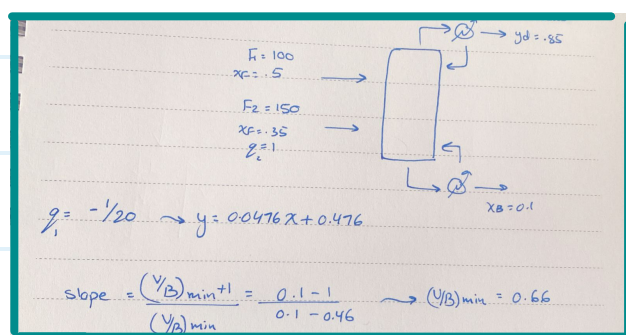 yd = .85
F1 = 100
xF = .5
F2 = 150
xF = .35
q2 = 1
xB = 0.1
q1 = -1/20 → y = 0.0476x + 0.476
slope = ((V/B)min+1)/(V/B)min = (0.1 - 1)/(0.1 - 0.46) → (V/B)min = 0.66